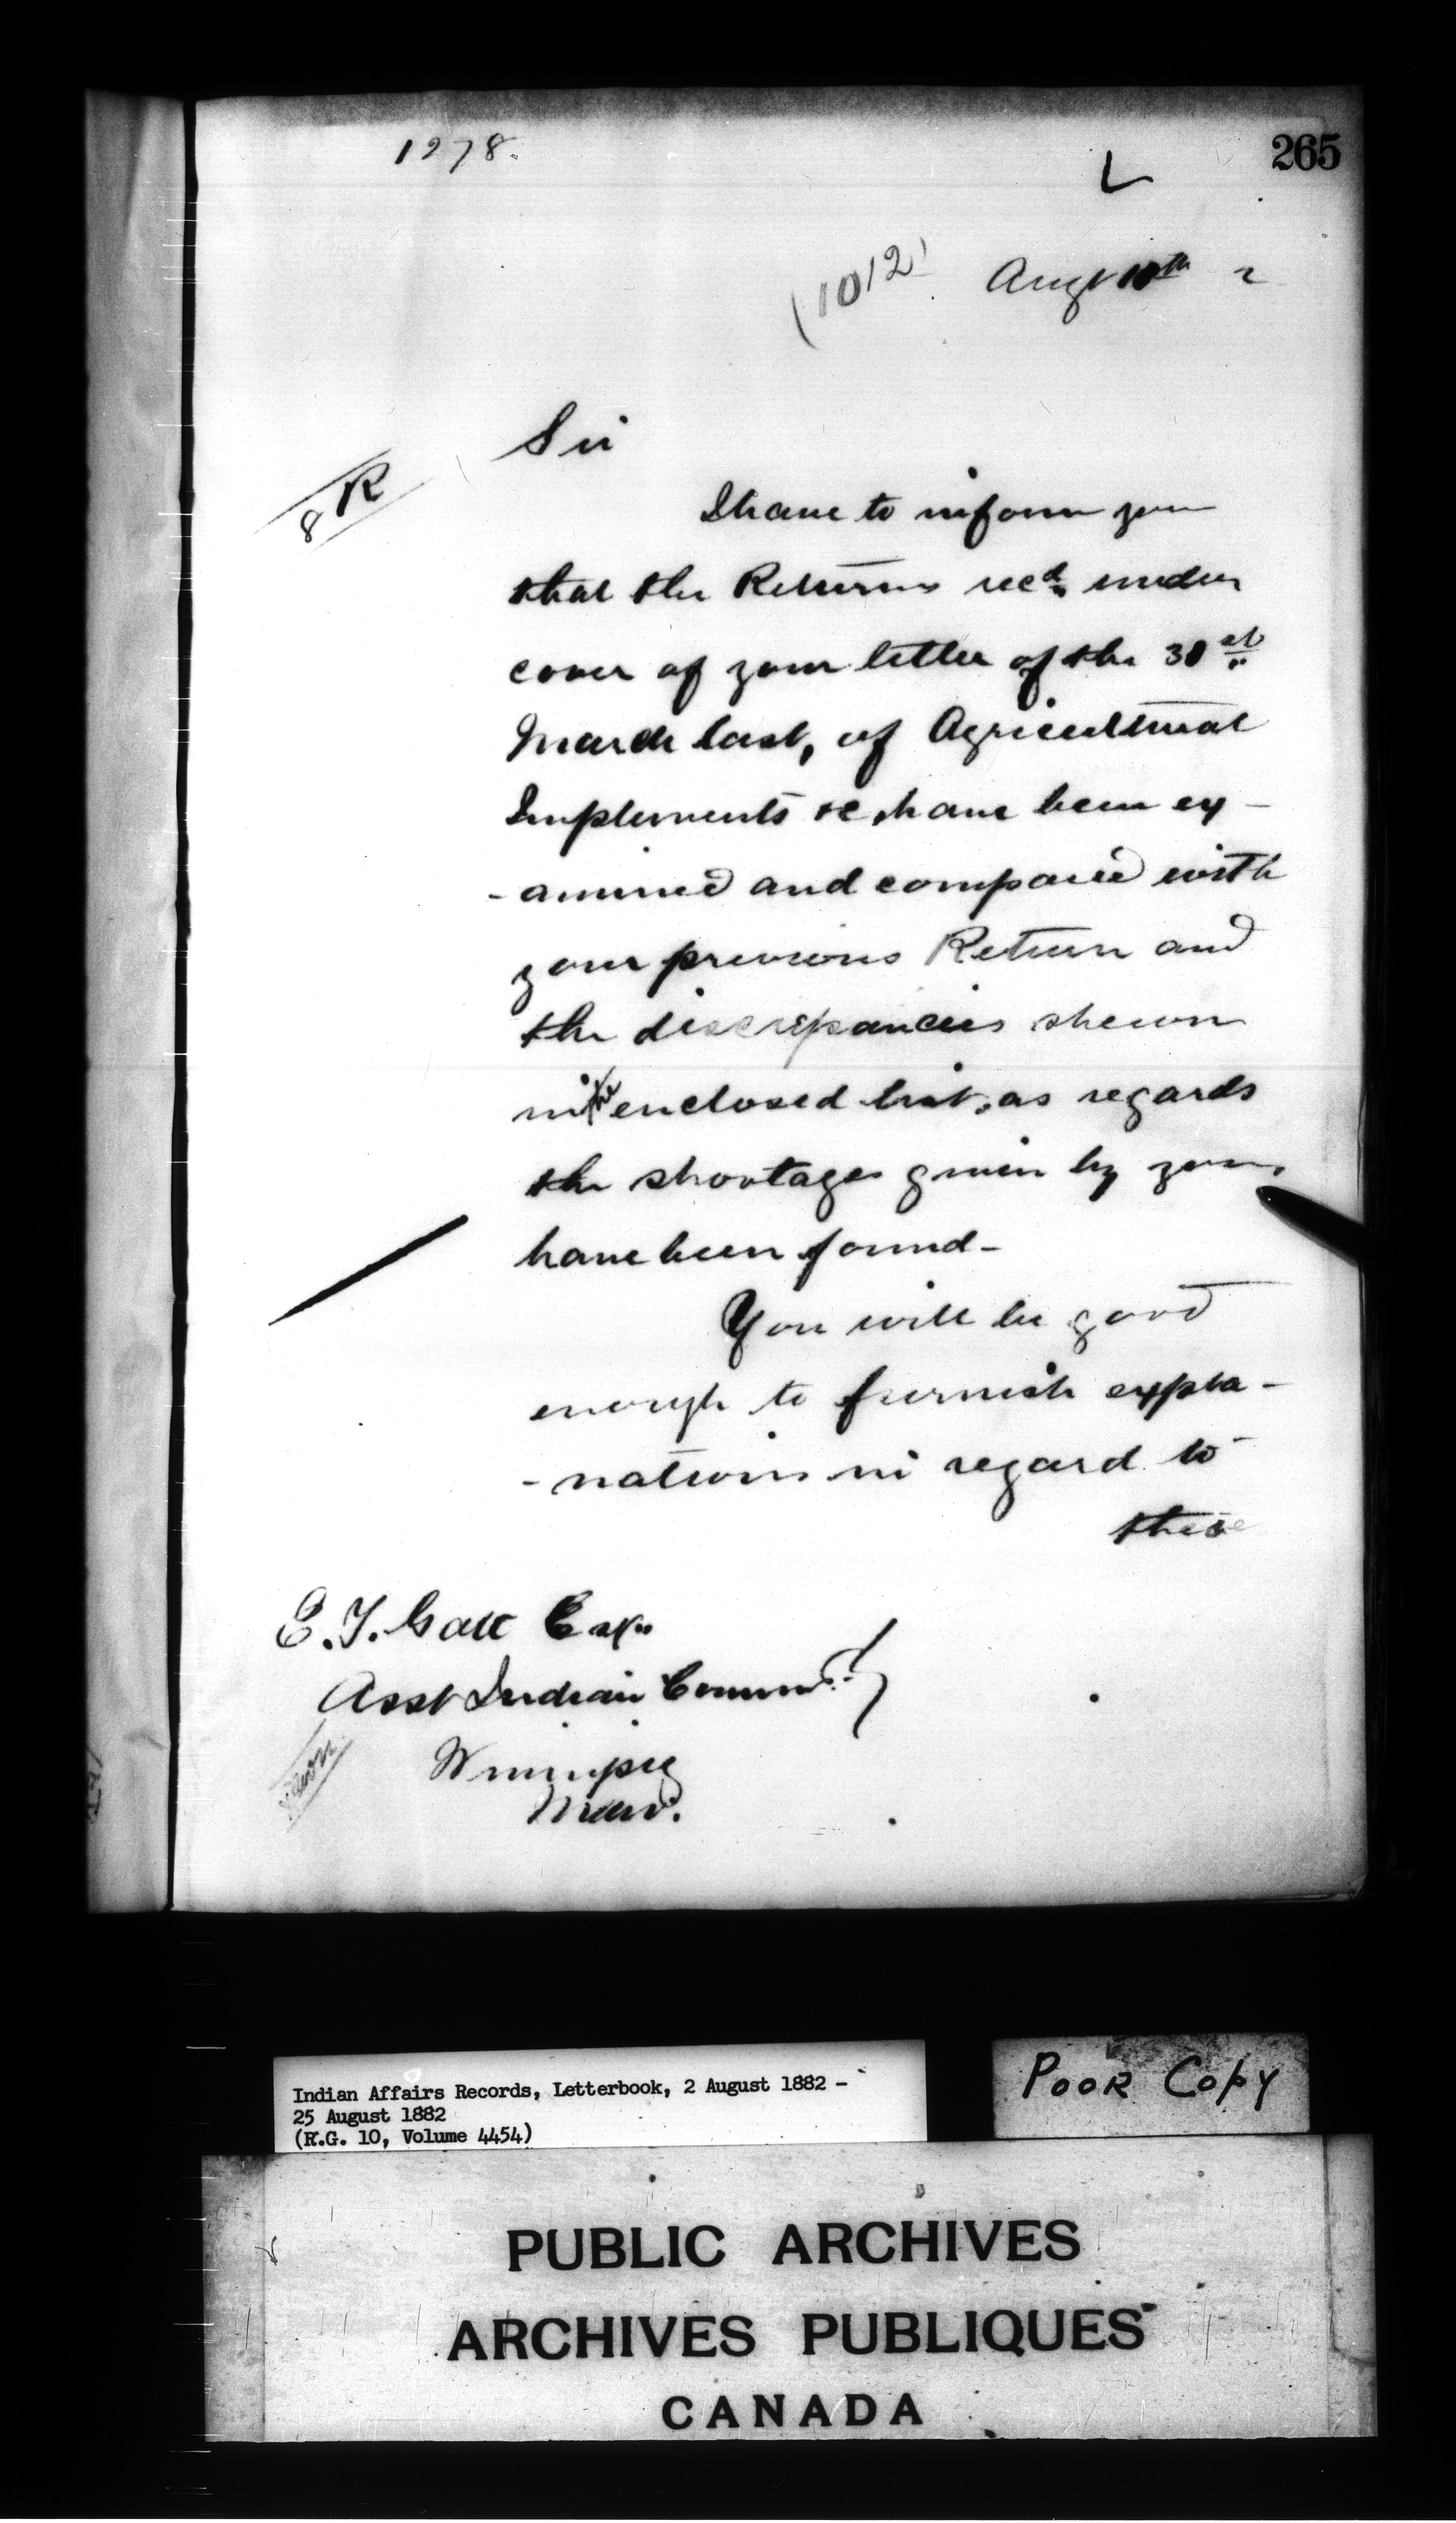 1278.
265
(1012)
Augt 10th 2
Sir
R
8
I have to inform you
that the Returns recd. under
cover of your letter of the 30st
March last, of Agricultural
Implements &c, have been ex-
-amined and compared with
your previous Return and
the discrepancies shewn
in the enclosed list, as regards
the shortages given by you,
have been found-
You will be good
enough to furnish expla-
-nations in regard to
these
E. T. Galt Esq.
Asst Indian Commr.
Winnipeg
Man.
Indian Affairs Records, Letterbook, 2 August 1882 -
25 August 1882
(R.G. 10, Volume 4454)
POOR COPY
PUBLIC ARCHIVES
ARCHIVES PUBLIQUES
CANADA